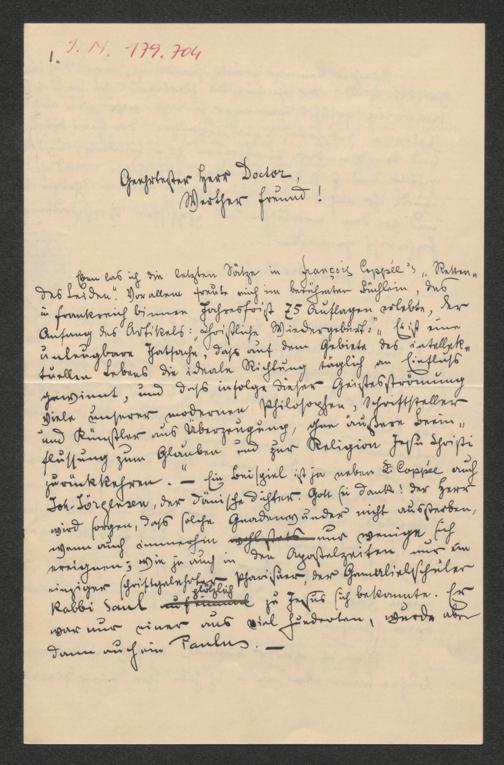 J. N. 179.704
1.
Geehrtester Herr Doctor,
Werther Freund!
Eben las ich die letzten Sätze in François Coppée's „Retten-
des Leiden“. Vor allem freute mich im berühmten Büchlein, das
in Frankreich binnen Jahresfrist 75 Auflagen erlebte, der
Anfang des Artikels: „Christliche Wiedergeburt:“ „Es ist eine
unleugbare Thatsache, daß auf dem Gebiete des intellek-
tuellen Lebens die ideale Richtung täglich an Einfluß
gewinnt, und daß infolge dieser Geistesströmung
viele unserer modernen Philosophen, Schriftsteller
und Künstler aus Überzeugung, ohne äußere Beein-
flussung zum Glauben und zur Religion Jesu Christi
zurückkehren.“ — Ein Beispiel ist ja neben Coppée auch
Joh. Jörgensen, der dänische Dichter. Gott sei Dank! der Herr
wird sorgen, daß solche Gnadenwunder nicht aussterben,
wenn auch immerhin nur wenige sich
ereignen; wie ja auch in den Apostelzeiten nur ein
einziger schriftgelehrter Pharisäer, der Gamalielschüler
Rabbi Saul plötzlich zu Jesus sich bekannte. Er
war nur einer aus viel Hunderten, wurde aber
dann auch ein Paulus. —